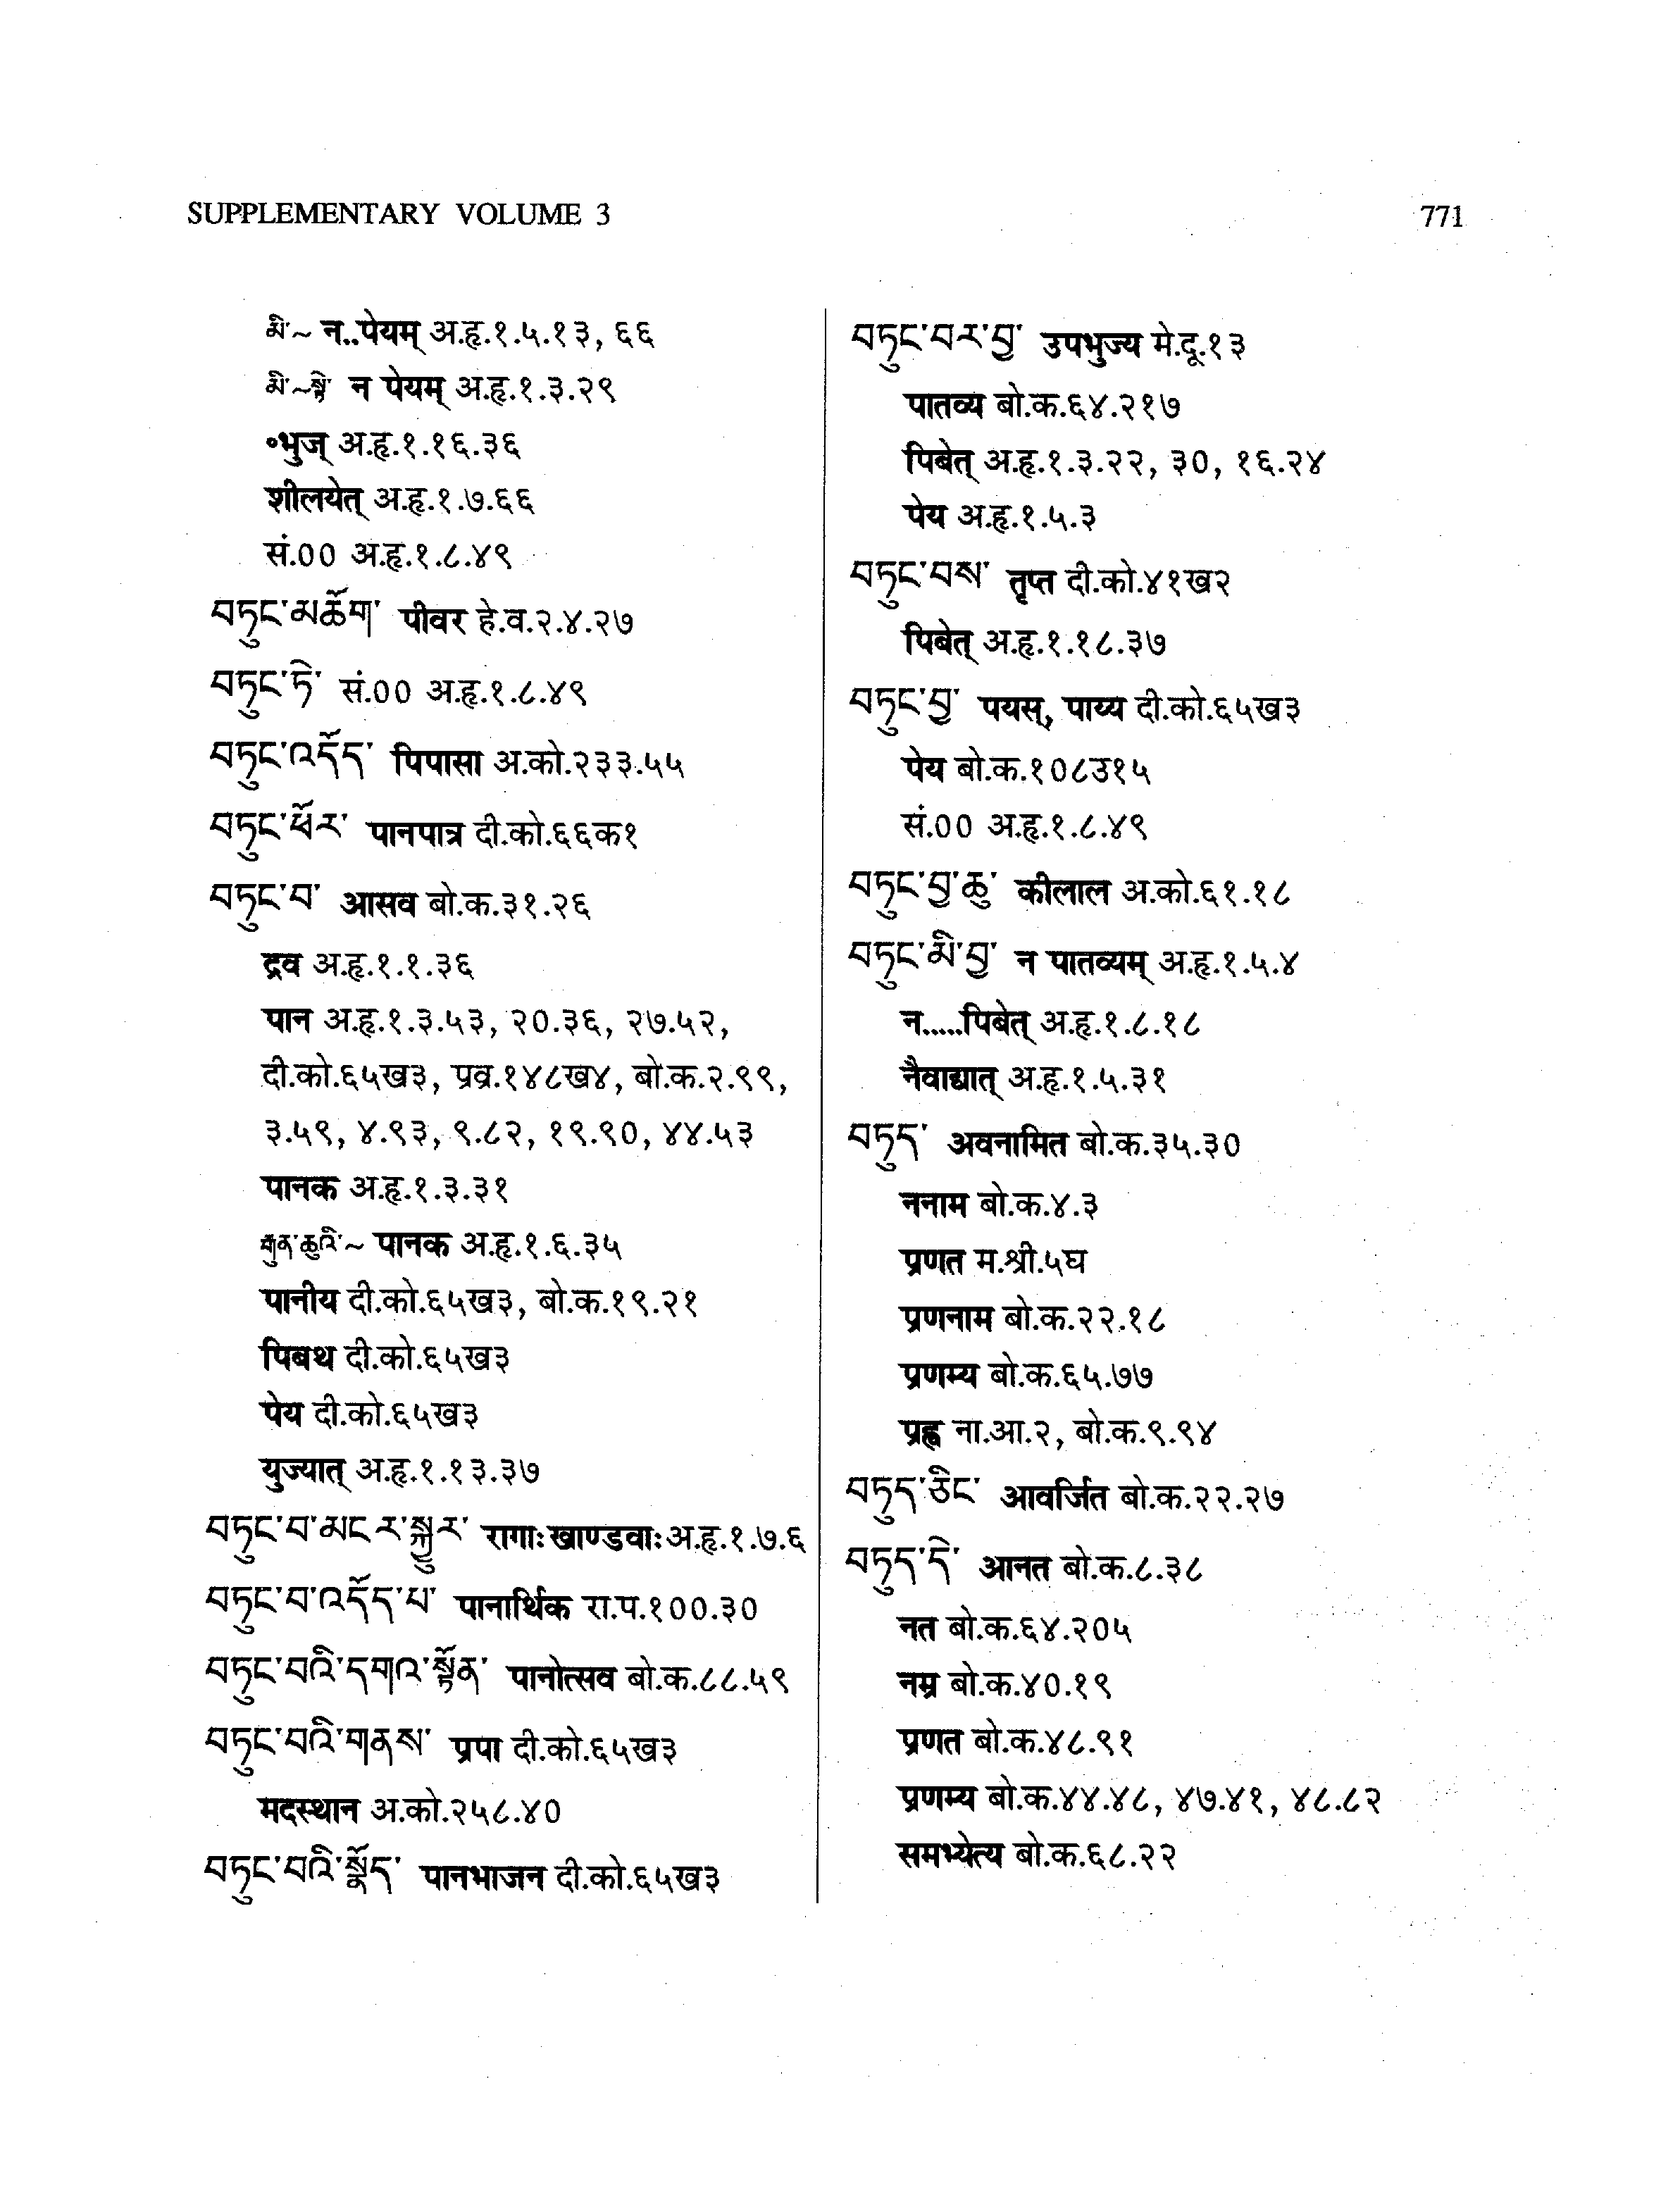 SUPPLEMENTARY VOLUME 3
771
མི་~ न..पेयम् अ.हृ.१.५.१३, ६६
མི་~སྟེ་ न पेयम् अ.हृ.१.३.२९
॰भुज् अ.हृ.१.१६.३६
शीलयेत् अ.हृ.१.७.६६
सं.00 अ.हृ.१.८.४९
བཏུང་མཆོག་ पीवर हे.व.२.४.२७
བཏུང་ཏེ་ सं.00 अ.हृ.१.८.४९
བཏུང་འདོད་ पिपासा अ.को.२३३.५५
བཏུང་ཕོར་ पानपात्र दी.को.६६क१
བཏུང་བ་ आसव बो.क.३१.२६
द्रव अ.हृ.१.१.३६
पान अ.हृ.१.३.५३, २०.३६, २७.५२,
दी.को.६५ख३, प्रव्र.१४८ख४, बो.क.२.९९,
३.५९, ४.९३, ९.८२, १९.९०, ४४.५३
पानक अ.हृ.१.३.३१
གུན་ཆུའི་~ पानक अ.हृ.१.६.३५
पानीय दी.को.६५ख३, बो.क.१९.२१
पिबथ दी.को.६५ख३
पेय दी.को.६५ख३
युज्यात् अ.हृ.१.१३.३७
བཏུང་བ་མངར་སྐྱུར་ रागाः खाण्डवाः अ.हृ.१.७.६
བཏུང་བ་འདོད་པ་ पानार्थिक रा.प.१००.३०
བཏུང་བའི་དགའ་སྟོན་ पानोत्सव बो.क.८८.५९
བཏུང་བའི་གནས་ प्रपा दी.को.६५ख३
मदस्थान अ.को.२५८.४०
བཏུང་བའི་སྣོད་ पानभाजन दी.को.६५ख३
བཏུང་བར་བྱ་ उपभुज्य मे.दू.१३
पातव्य बो.क.६४.२१७
पिबेत् अ.हृ.१.३.२२, ३०, १६.२४
पेय अ.हृ.१.५.३
བཏུང་བས་ तृप्त दी.को.४१ख२
पिबेत् अ.हृ.१.१८.३७
བཏུང་བྱ་ पयस्, पाय्य दी.को.६५ख३
पेय बो.क.१०८उ१५
सं.00 अ.हृ.१.८.४९
བཏུང་བྱ་ཆུ་ कीलाल अ.को.६१.१८
བཏུང་མི་བྱ་ न पातव्यम् अ.हृ.१.५.४
न.....पिबेत् अ.हृ.१.८.१८
नैवाद्यात् अ.हृ.१.५.३१
བཏུད་ अवनामित बो.क.३५.३०
ननाम बो.क.४.३
प्रणत म.श्री.५घ
प्रणनाम बो.क.२२.१८
प्रणम्य बो.क.६५.७७
प्रह्व ना.आ.२, बो.क.९.९४
བཏུད་ཅིང་ आवर्जित बो.क.२२.२७
བཏུད་དེ་ आनत बो.क.८.३८
नत बो.क.६४.२०५
नम्र बो.क.४०.१९
प्रणत बो.क.४८.९१
प्रणम्य बो.क.४४.४८, ४७.४१, ४८.८२
समभ्येत्य बो.क.६८.२२